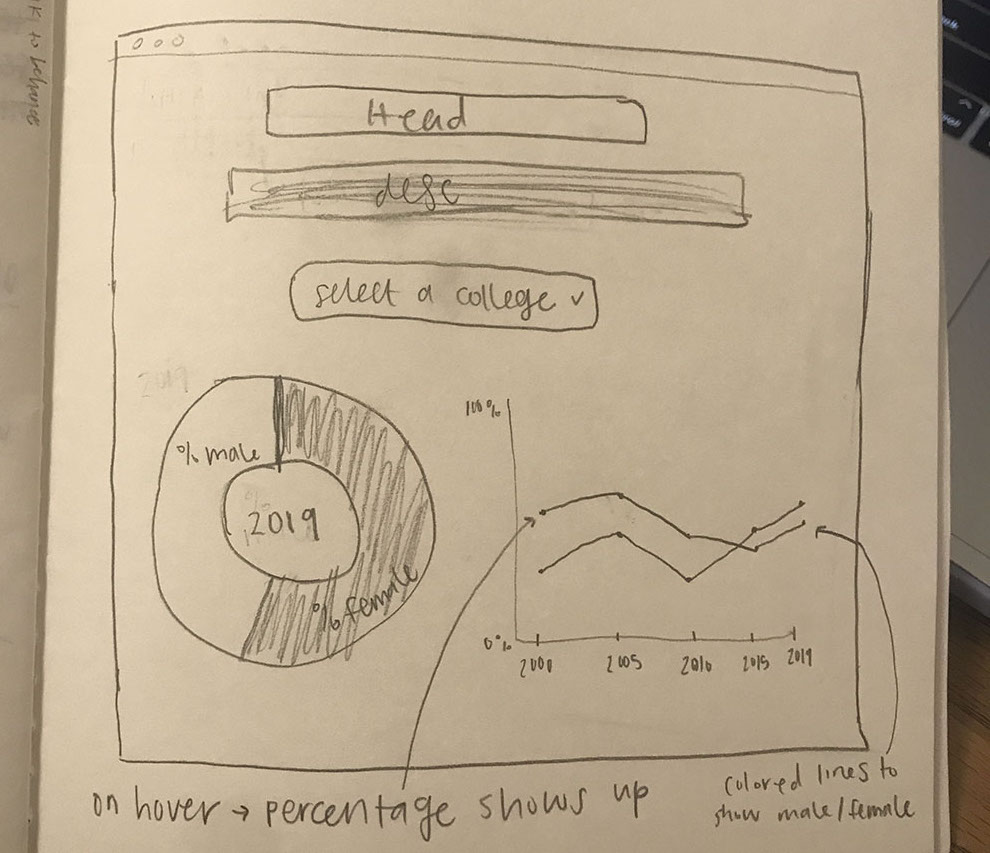 Head
desc
select a college
% male
2019
% female
100%
0%
2000
2005
2010
2015
2019
on hover → percentage shows up
colored lines to
show male/female